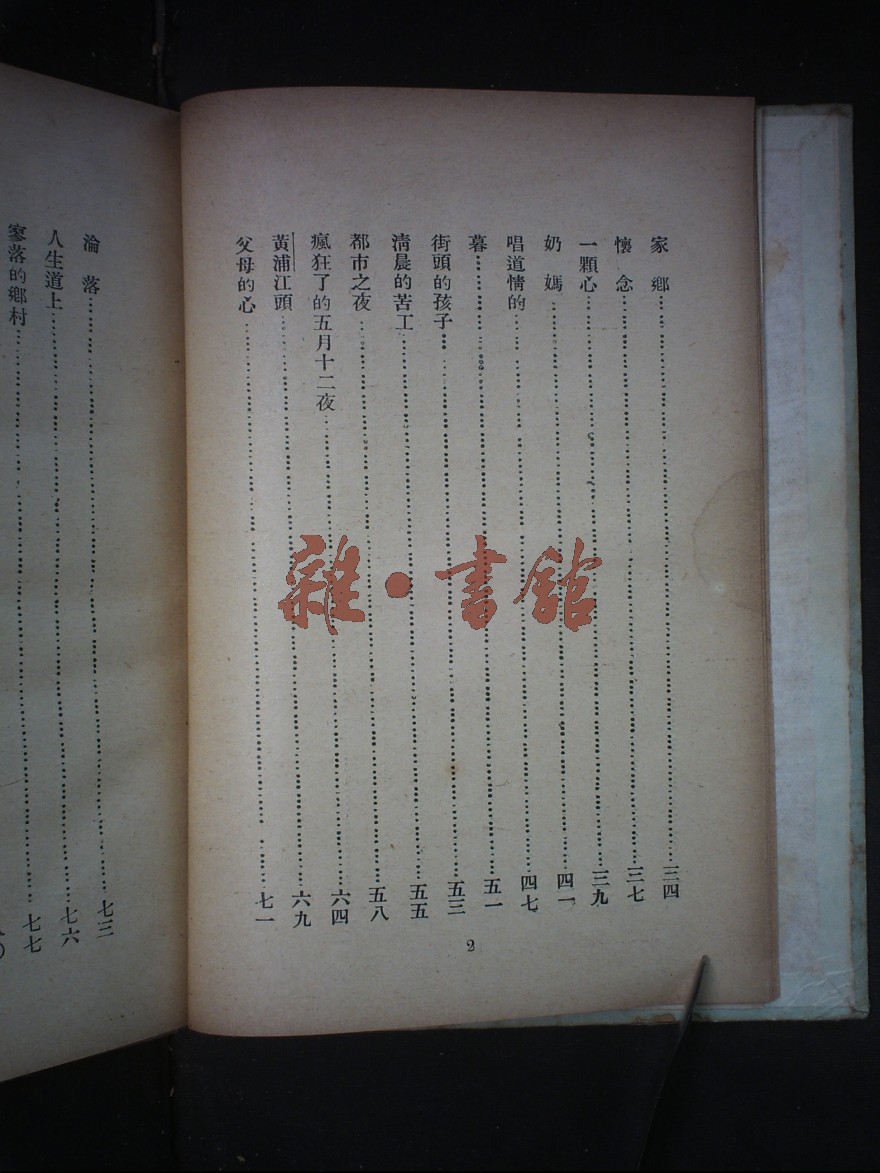 家鄉……三四
懷念……三七
一顆心……三九
奶媽……四一
唱道情的……四七
暮……五一
街頭的孩子……五三
清晨的苦工……五五
都市之夜……五八
瘋狂了的五月十二夜……六四
黃浦江頭……六九
父母的心……七一
2
淪落……七三
人生道上……七六
寥落的鄉村……七七
雜·書館